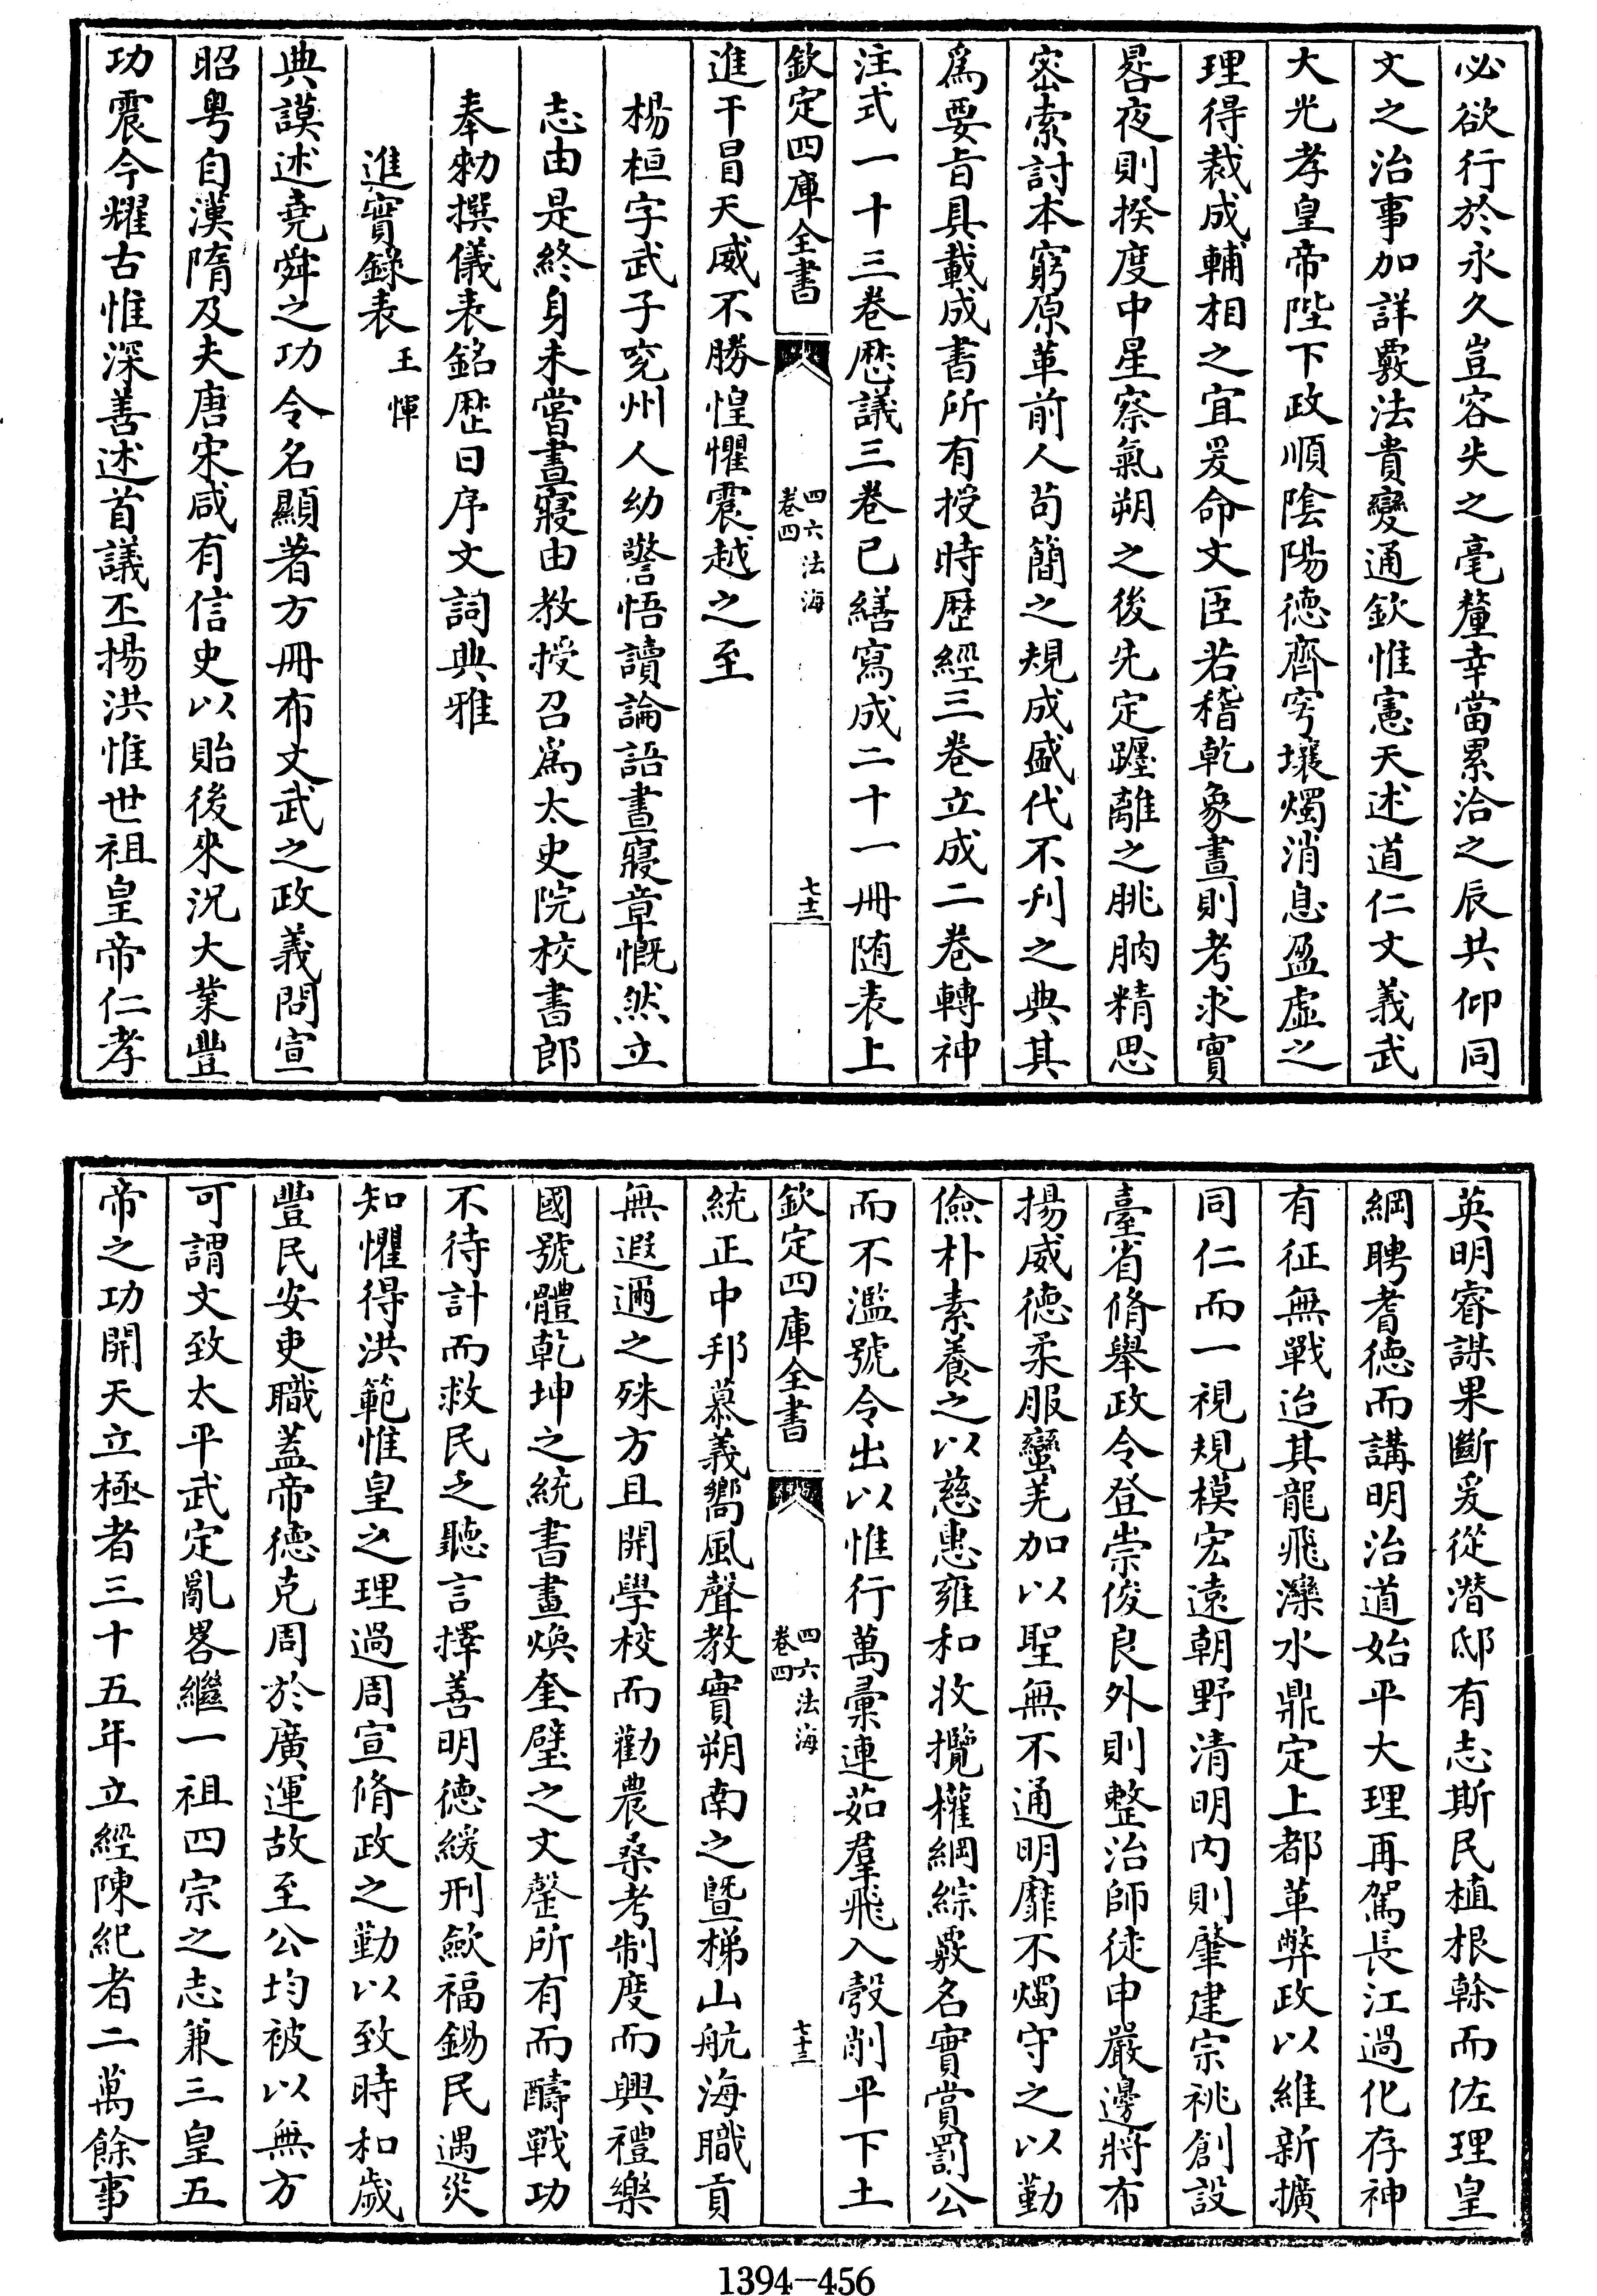 必欲行於永久豈容失之毫釐幸當累洽之辰共仰同
文之治事加詳覈法貴變通欽惟憲天述道仁文義武
大光孝皇帝陛下政順陰陽德齊穹壤燭消息盈虛之
理得裁成輔相之宜爰命文臣若稽乾象晝則考求實
晷夜則揆度中星察氣朔之後先定躔離之朓朒精思
宻索討本窮原革前人苟簡之規成盛代不刋之典其
爲要旨具載成書所有授時歴經三巻立成二巻轉神
注式一十三巻歴議三巻已繕寫成二十一冊随表上
欽定四庫全書
四六法海
巻四
七十二
進干冒天威不勝惶懼震越之至
楊桓字武子兗州人幼警悟讀論語晝寢章慨然立
志由是終身未嘗晝寢由教授召爲太史院校書郎
奉勑撰儀表銘歴日序文詞典雅
進實錄表 王惲
典謨述堯舜之功令名顯著方冊布文武之政義問宣
昭粤自漢隋及夫唐宋咸有信史以貽後來況大業豐
功震今耀古惟深善述首議丕揚洪惟世祖皇帝仁孝
英明睿謀果斷爰從潛邸有志斯民植根榦而佐理皇
綱聘耆德而講明治道始平大理再駕長江過化存神
有征無戰迨其龍飛灤水鼎定上都革弊政以維新擴
同仁而一視規模宏遠朝野清明内則肇建宗祧創設
臺省脩舉政令登崇俊良外則整治師徒申嚴邊將布
揚威德柔服蠻羌加以聖無不通明靡不燭守之以勤
儉朴素養之以慈惠雍和收攬權綱綜覈名實賞罰公
而不濫號令出以惟行萬彚連茹羣飛入彀削平下土
欽定四庫全書
四六法海
巻四
七十三
統正中邦慕義嚮風聲教實朔南之暨梯山航海職貢
無遐邇之殊方且開學校而勸農桑考制度而興禮樂
國號體乾坤之統書畫煥奎璧之文罄所有而醻戰功
不待計而救民乏聽言擇善明德緩刑歛福錫民遇災
知懼得洪範惟皇之理過周宣脩政之勤以致時和歲
豐民安吏職蓋帝德克周於廣運故至公均被以無方
可謂文致太平武定亂畧繼一祖四宗之志兼三皇五
帝之功開天立極者三十五年立經陳紀者二萬餘事
1394—456